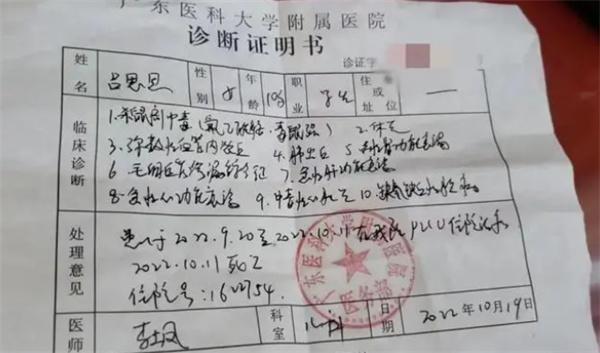 广东医科大学附属医院
诊断证明书
诊证字
姓名 吕思恩 性别 女 年龄 10岁 职业 学生 住址或单位 一
临床诊断
1.杀鼠剂中毒(氟乙酰胺、毒鼠强) 2.休克
3.弥散性血管内凝血 4.肺出血 5.急性肾功能衰竭
6.毛细血管渗漏综合征 7.急性肝功能衰竭
8.急性心功能衰竭 9.中毒性心肌炎 10.缺氧缺血性脑病
处理意见
患儿于2022.9.20至2022.10.11在我院PICU住院治疗
2022.10.11死亡
住院号:1622754.
广东医科大学附属医院
医务部
医师 科室 儿科 日期 2022年10月19日